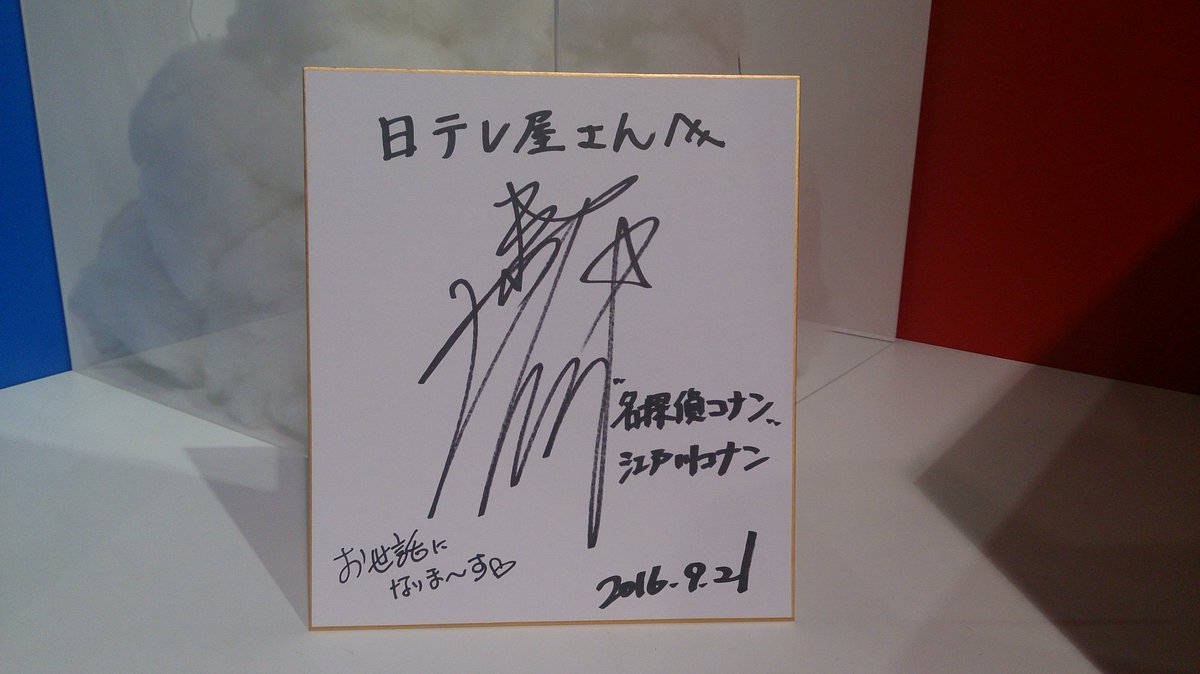 日テレ屋さんへ
"名探偵コナン"
江戸川コナン
お世話に
なりま〜す♡
2016.9.21